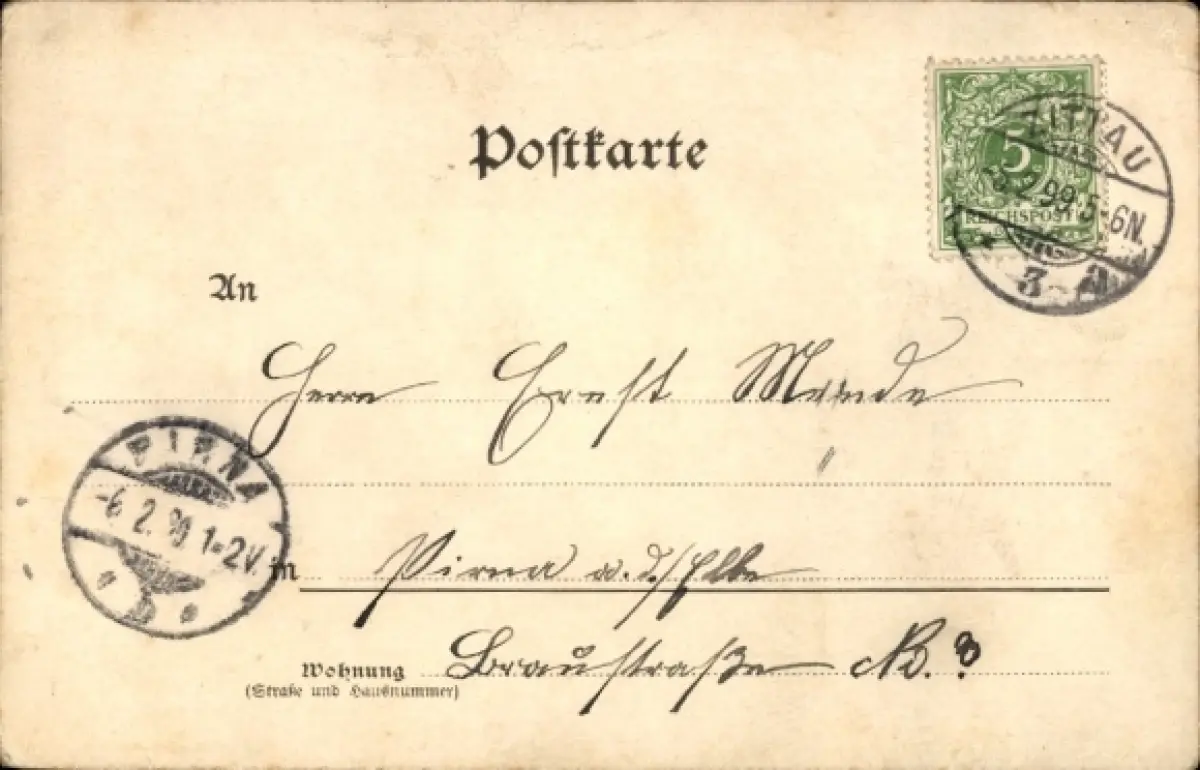 Postkarte
5
REICHSPOST
ZITTAU
2.99.5-6N.
3
An
Herrn Ernst
PIRNA
-6.2.99 1-2V.
in Pirna a. d./Elbe
Wohnung Braustraße No.
(Straße und Hausnummer)